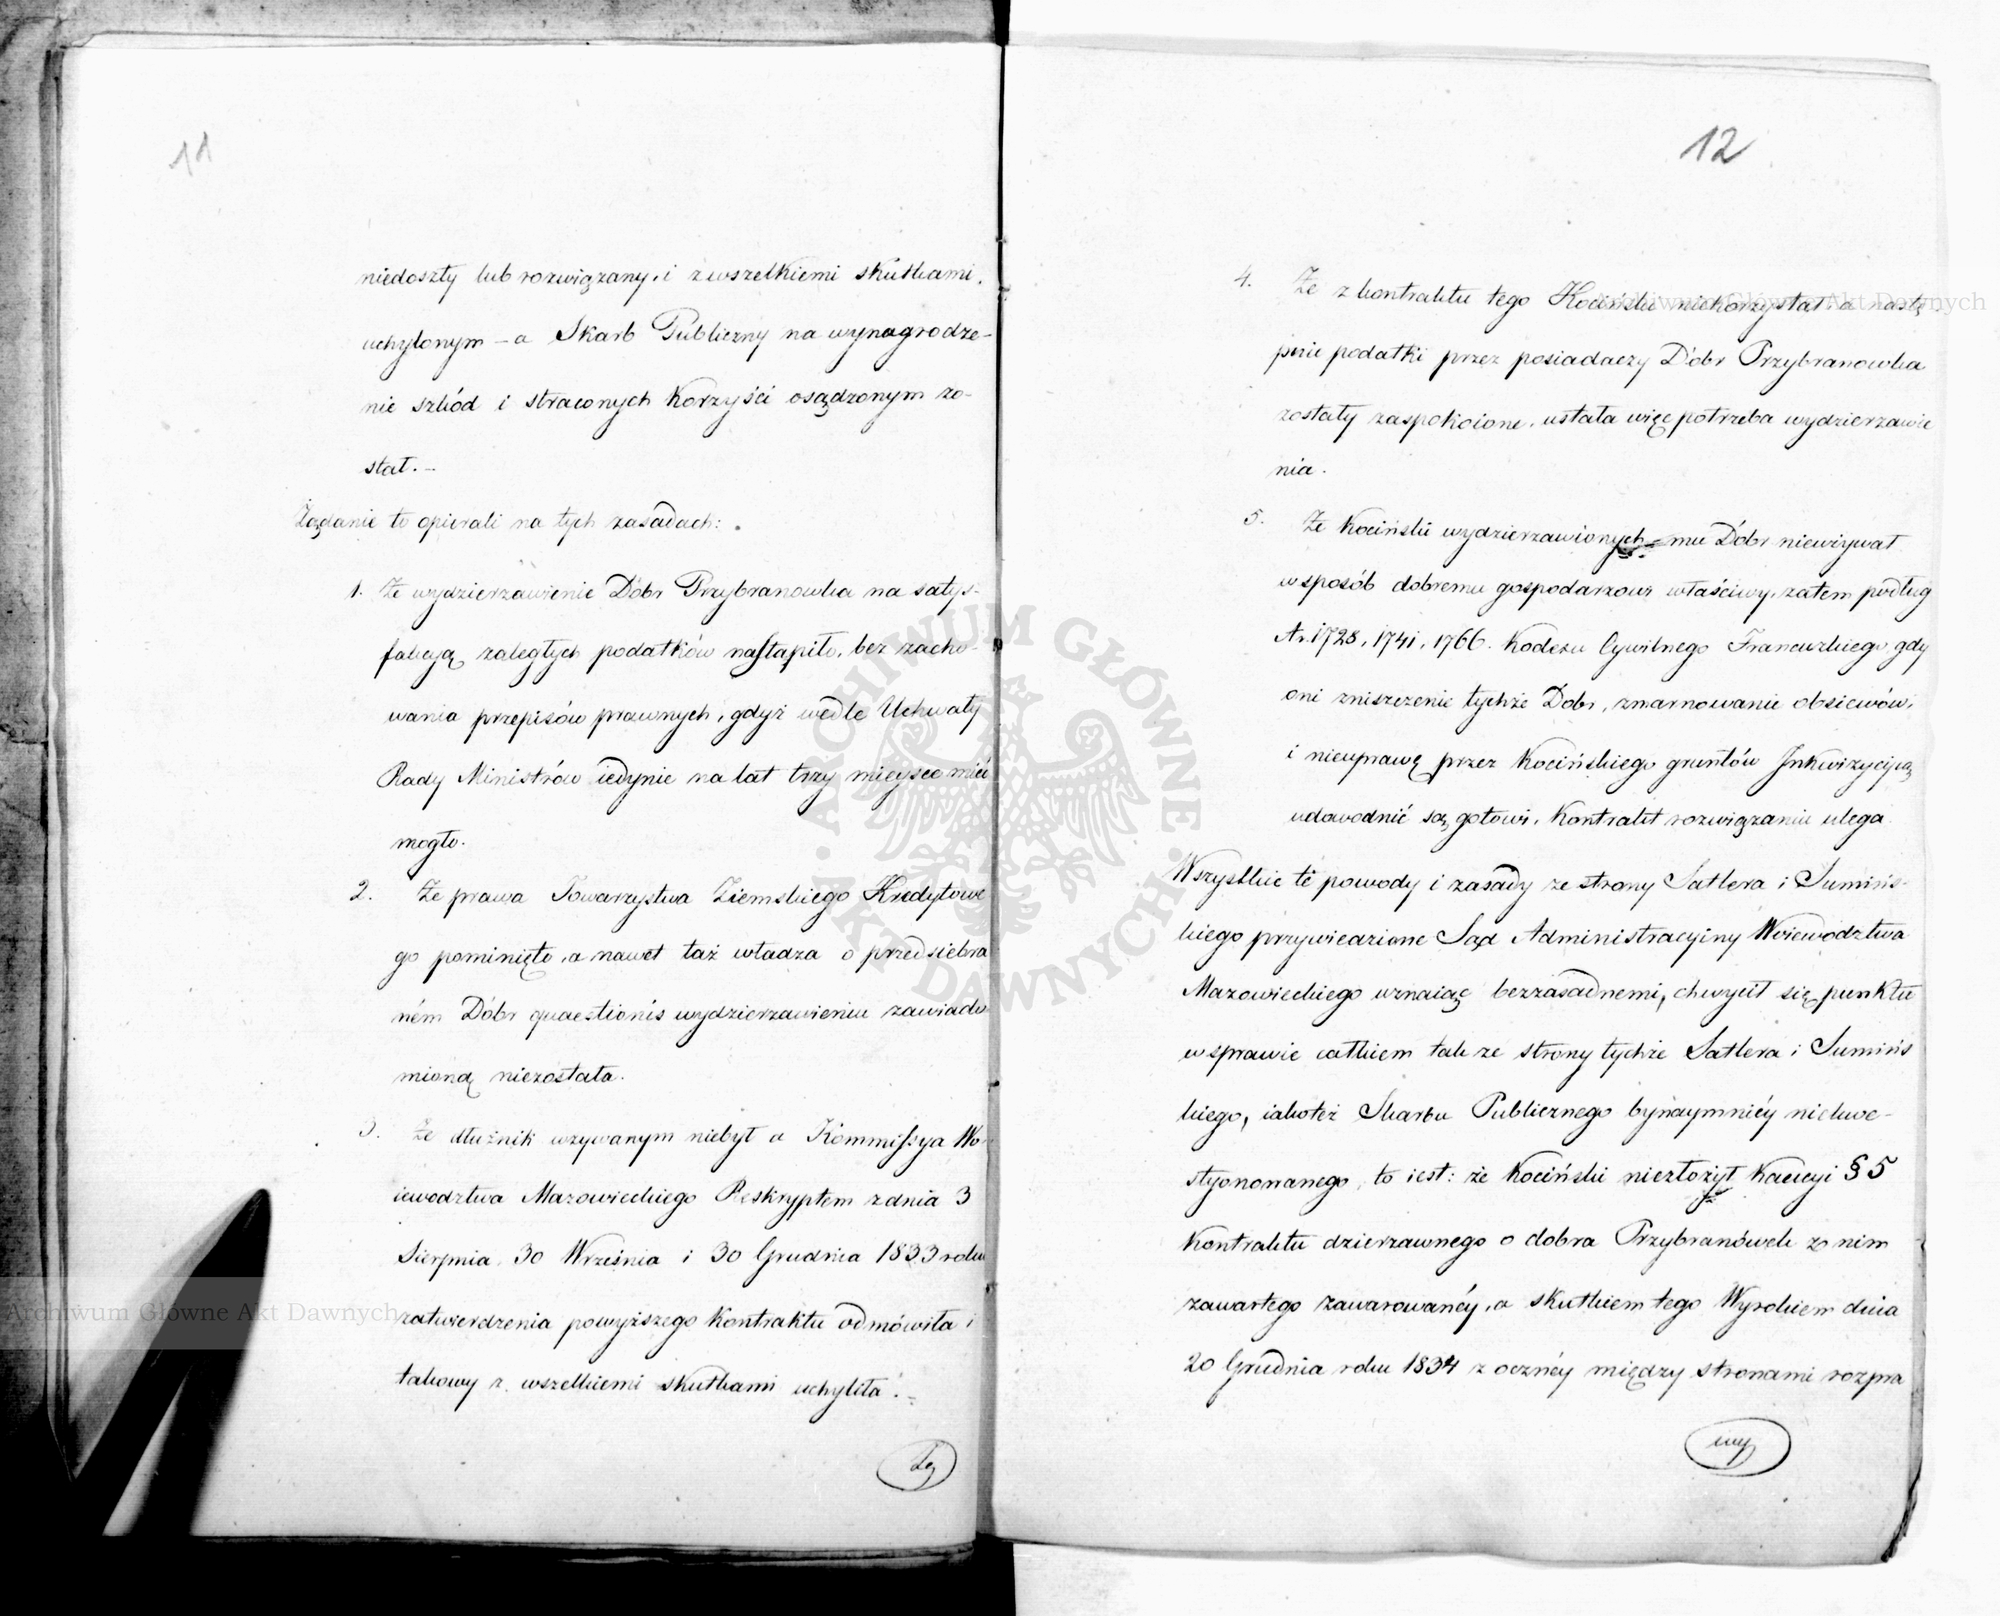 11
niedoszły lub rozwiązany, i z wszelkiemi skutkami,
uchylonym – a Skarb Publiczny na wynagrodze-
nie szkód i straconych korzyści osądzonym zo-
stał. –
Żądanie to opierali na tych zasadach:
1. Że wydzierzawienie Dóbr Przybranowka na satys-
fakcyą zaległych podatków nastąpiło, bez zacho-
wania przepisów prawnych, gdyż wedle Uchwały
Rady Ministrów iedynie na lat trzy mieysce mieć
mogło.
2. Że prawa Towarzystwa Ziemskiego Kredytowe
go pominięto, a nawet taż władza o przedsiebra
ném Dóbr quaestionis wydzierzawieniu zawiado
mioną niezostała.
3. Że dłużnik wzywanym niebył a Kommissya Wo-
iewodztwa Mazowieckiego Reskryptem z dnia 3
Sierpnia, 30 Września i 30 Grudnia 1833 roku
zatwierdzenia powyższego Kontraktu odmówiła i
takowy z wszelkiemi skutkami uchyliła. –
Że
12
4. Że z kontraktu tego Kociński niekorzystał a nastę
pnie podatki przez posiadaczy Dóbr Przybranowka
zostały zaspokoione, ustała więc potrzeba wydzierzawie
nia.
5. Że Kociński wydzierzawionych mu Dóbr nieużywał
w sposób dobremu gospodarzowi właściwy, zatem podług
Ar. 1728, 1741, 1766. Kodexu Cywilnego Francuzkiego, gdy
oni zniszczenie tychże Dóbr, zmarnowanie obsiewów,
i nieuprawę przez Kocińskiego gruntów Inkwizycyią
udowodnić są gotowi, Kontrakt rozwiązaniu ulega.
Wszystkie te powody i zasady ze strony Satlera i Sumińs-
kiego przywiedzione Sąd Administracyiny Woiewództwa
Mazowieckiego uznaiąc bezzasadnemi, chwycił się punktu
w sprawie całkiem tak ze strony tychże Satlera i Sumińs
kiego, iakoteż Skarbu Publicznego bynaymniéy niekwe-
styonowanego, to iest: że Kociński niezłożył Kaucyi § 5
Kontraktu dzierzawnego o dobra Przybranówek z nim
zawartego zawarowanéy, a skutkiem tego Wyrokiem dnia
20 Grudnia roku 1834 z ocznéy między stronami rozpra
wy
Archiwum Główne Akt Dawnych
Archiwum Główne Akt Dawnych
ARCHIWUM GŁÓWNE · AKT DAWNYCH ·